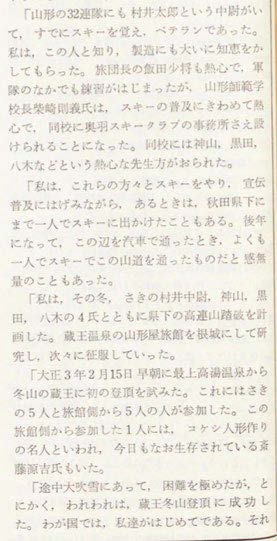 「山形の32連隊にも 村井太郎という中尉がい
て，すでにスキーを覚え，ベテランであった。
私は，この人と知り，製造にも大いに知恵をか
してもらった。旅団長の飯田少将も熱心で，軍
隊のなかでも練習がはじまったが，山形師範学
校長柴崎則義氏は，スキーの普及にきわめて熱
心で，同校に奥羽スキークラブの事務所さえ設
けられることになった。同校には神山，黒田，
八木などという熱心な先生方がおられた。
「私は，これらの方々とスキーをやり，宣伝
普及にはげみながら，あるときは，秋田県下に
まで一人でスキーに出かけたこともある。後年
になって，この辺を汽車で通ったとき，よくも
一人でスキーでこの山道を通ったものだと感無
量のこともあった。
「私は，その冬，さきの村井中尉，神山，黒
田，八木の4氏とともに県下の高連山踏破を計
画した。蔵王温泉の山形屋旅館を根城にして研
究し，次々に征服していった。
「大正3年2月15日 早朝に最上高湯温泉から
冬山の蔵王に初の登頂を試みた。これにはさき
の5人と旅館側から5人の人が参加した。この
旅館側から参加した1人には，コケシ人形作り
の名人といわれ，今日もなお生存されている斎
藤源吉氏もいた。
「途中大吹雪にあって，困難を極めたが，と
にかく，われわれは，蔵王冬山登頂に成功し
た。わが国では，私達がはじめてである。それ